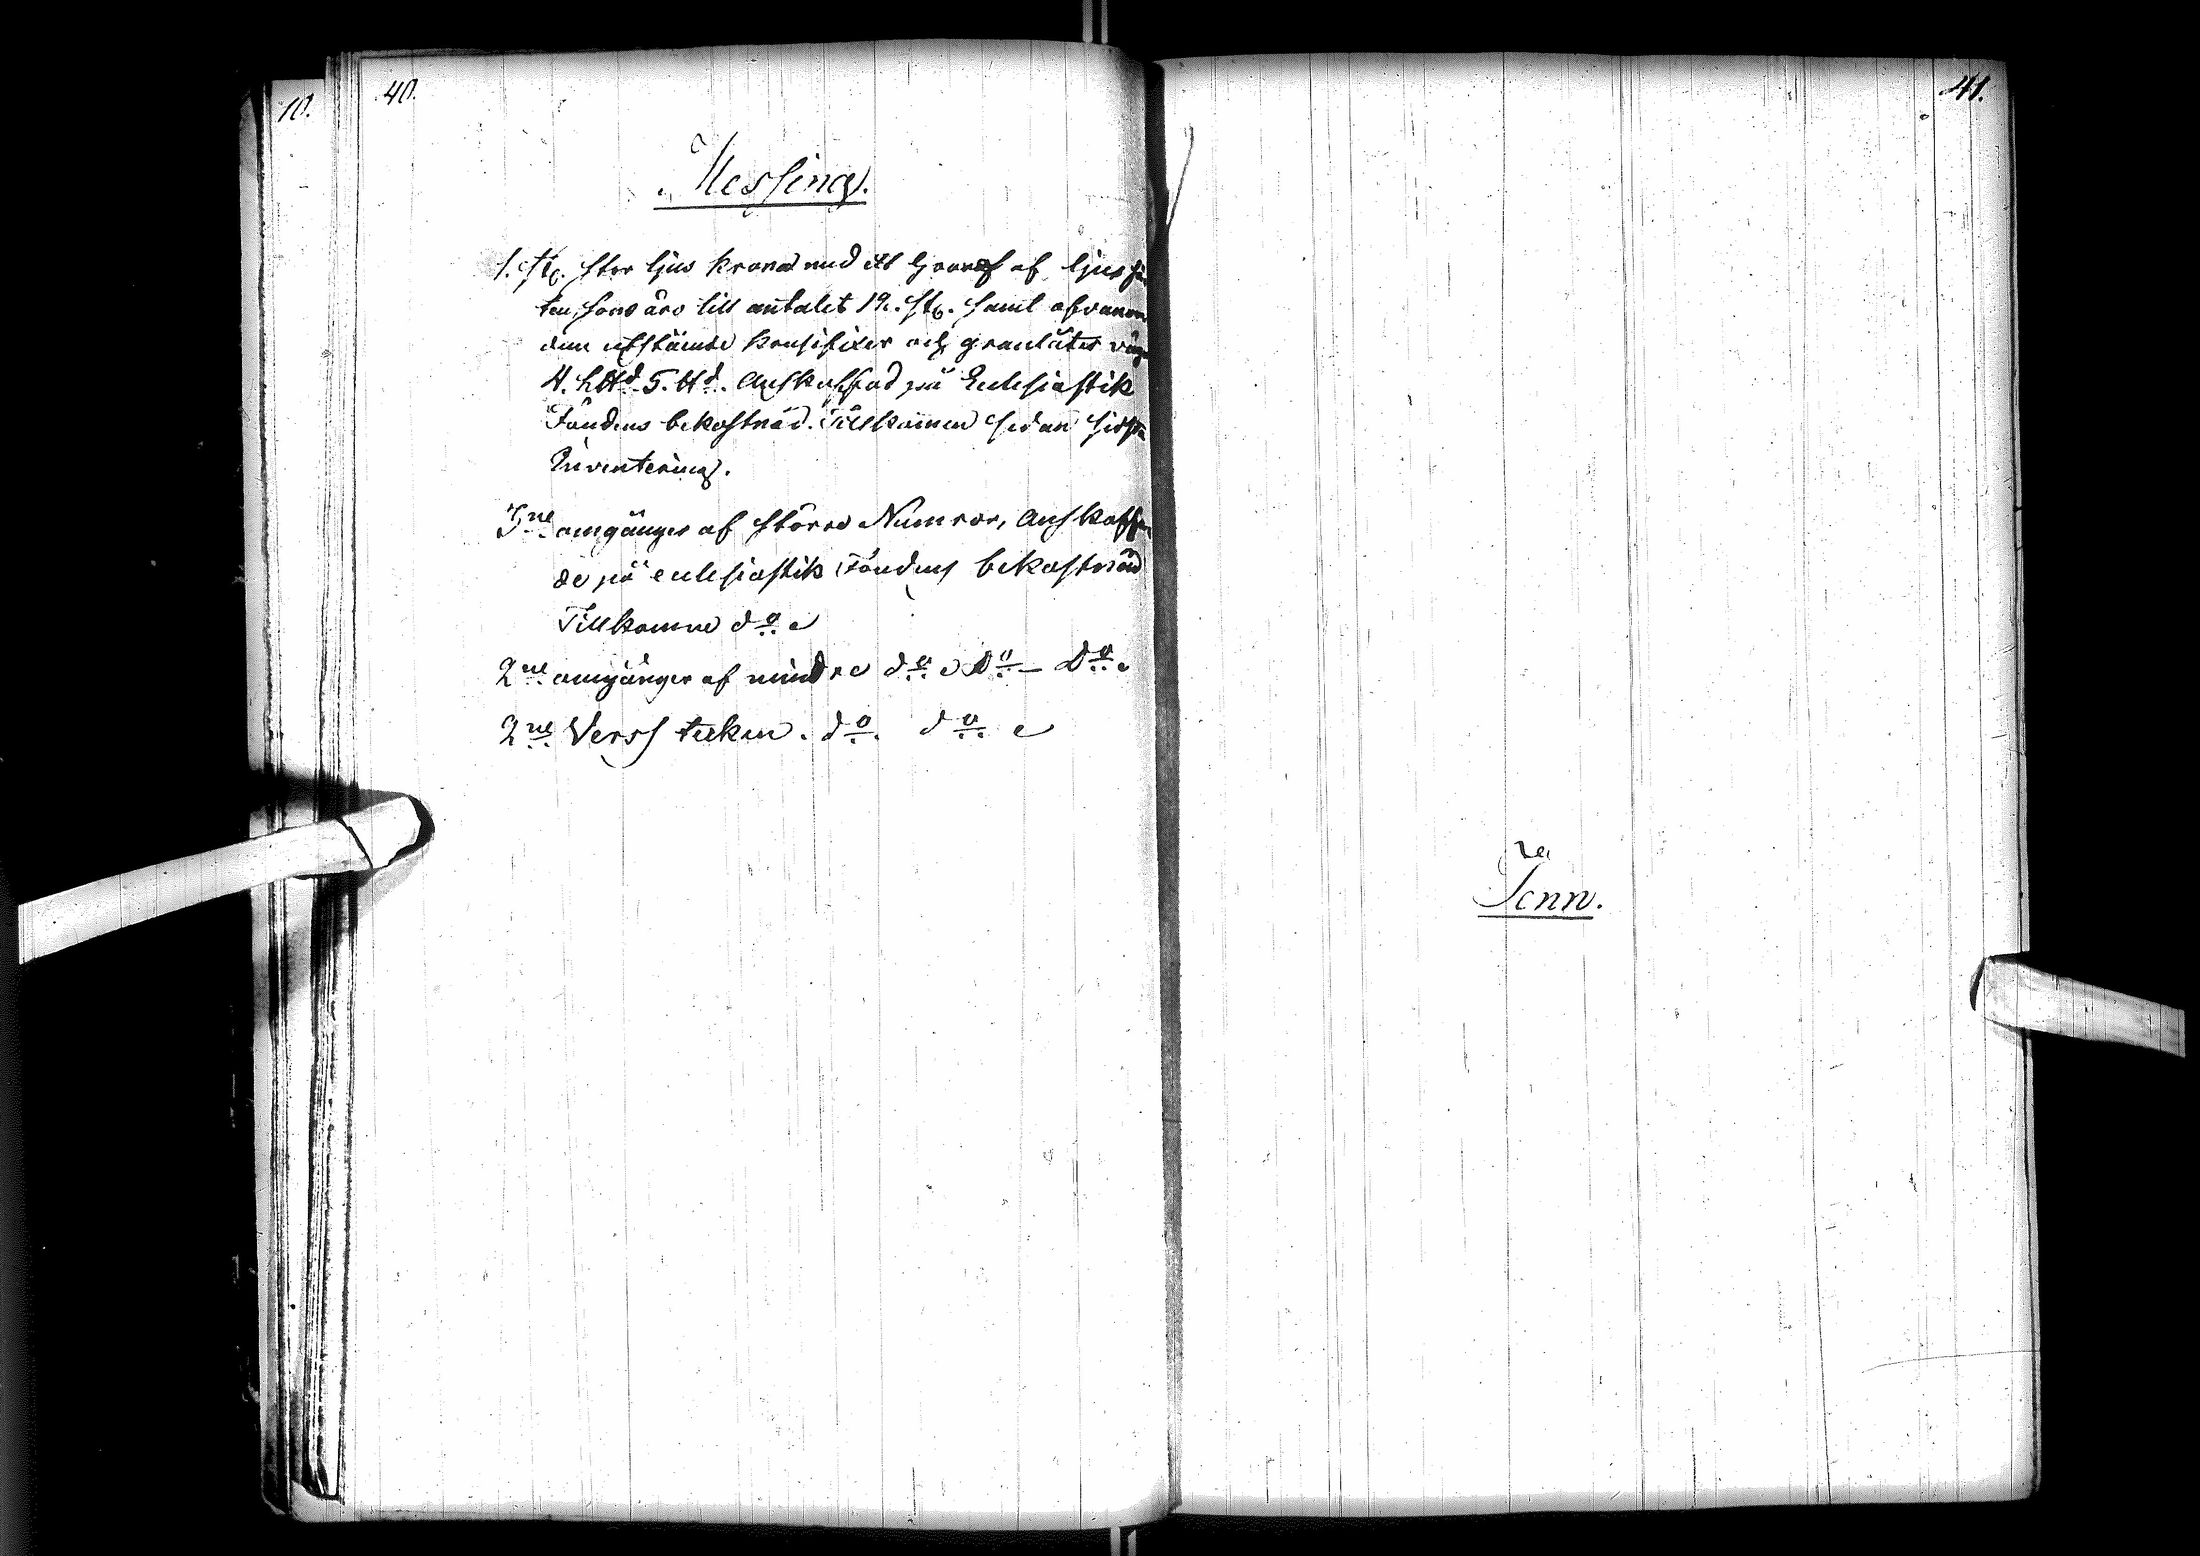 10.
40.
Messing.
1. st. stor ljus krona med ett af ljus
ten, som äro till antalet 12. st. samt ofvanom
dem och
4. L℔d 5. ℔d. Anskaffad på Ecclesiastik
Fondens bekostnad. Tillkommen sedan sidsta
Inventering.
3ne omgånger af större Numror, Anskaffa
de på ecclesiastik Fondens bekostnad
Tillkomne do
2ne omgånger af mindre do Do – Do
2ne Vers tecken. do. do
41.
Tenn.